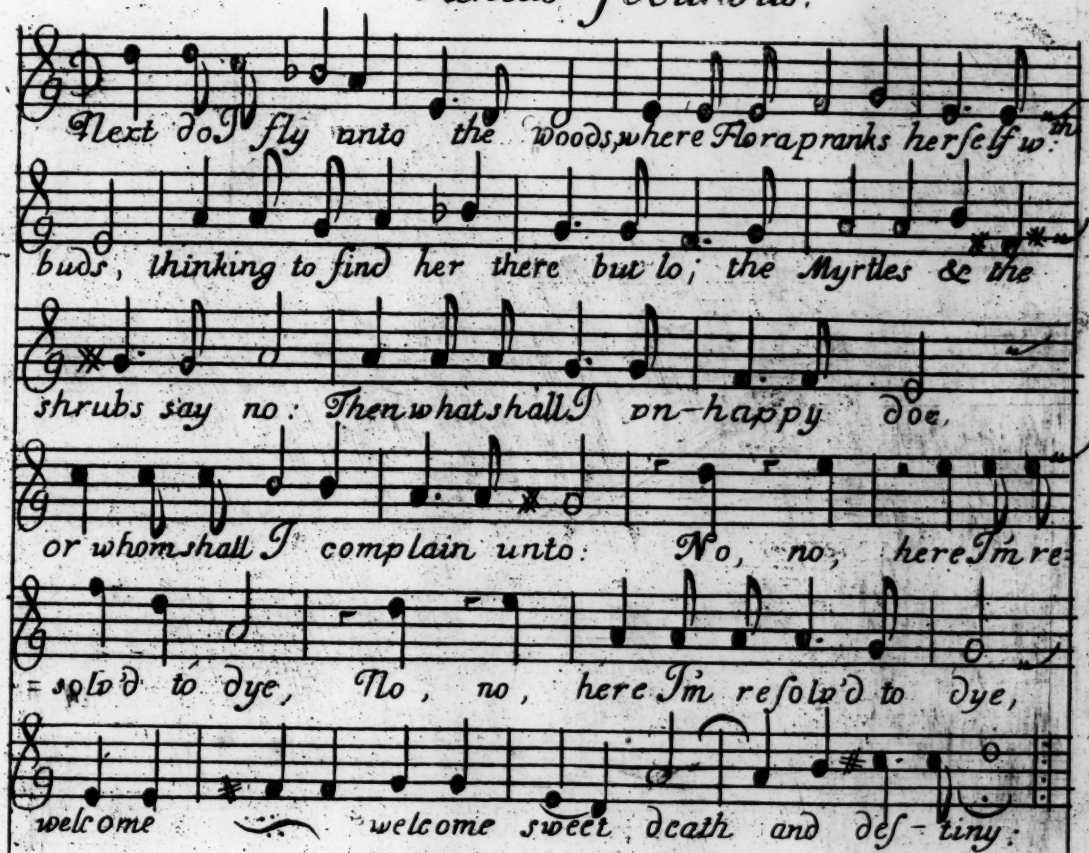 Next do I fly unto the woods, where Flora pranks herſelf w:th
buds, thinking to find her there but lo; the Myrtles & the
shrubs say no: Then what shall I vn-happy doe,
or whom shall I complain unto: No, no, here I'm re=
=solv'd to dye, No, no, here I'm reſolv'd to dye,
welcome welcome sweet death and deſ-tiny: